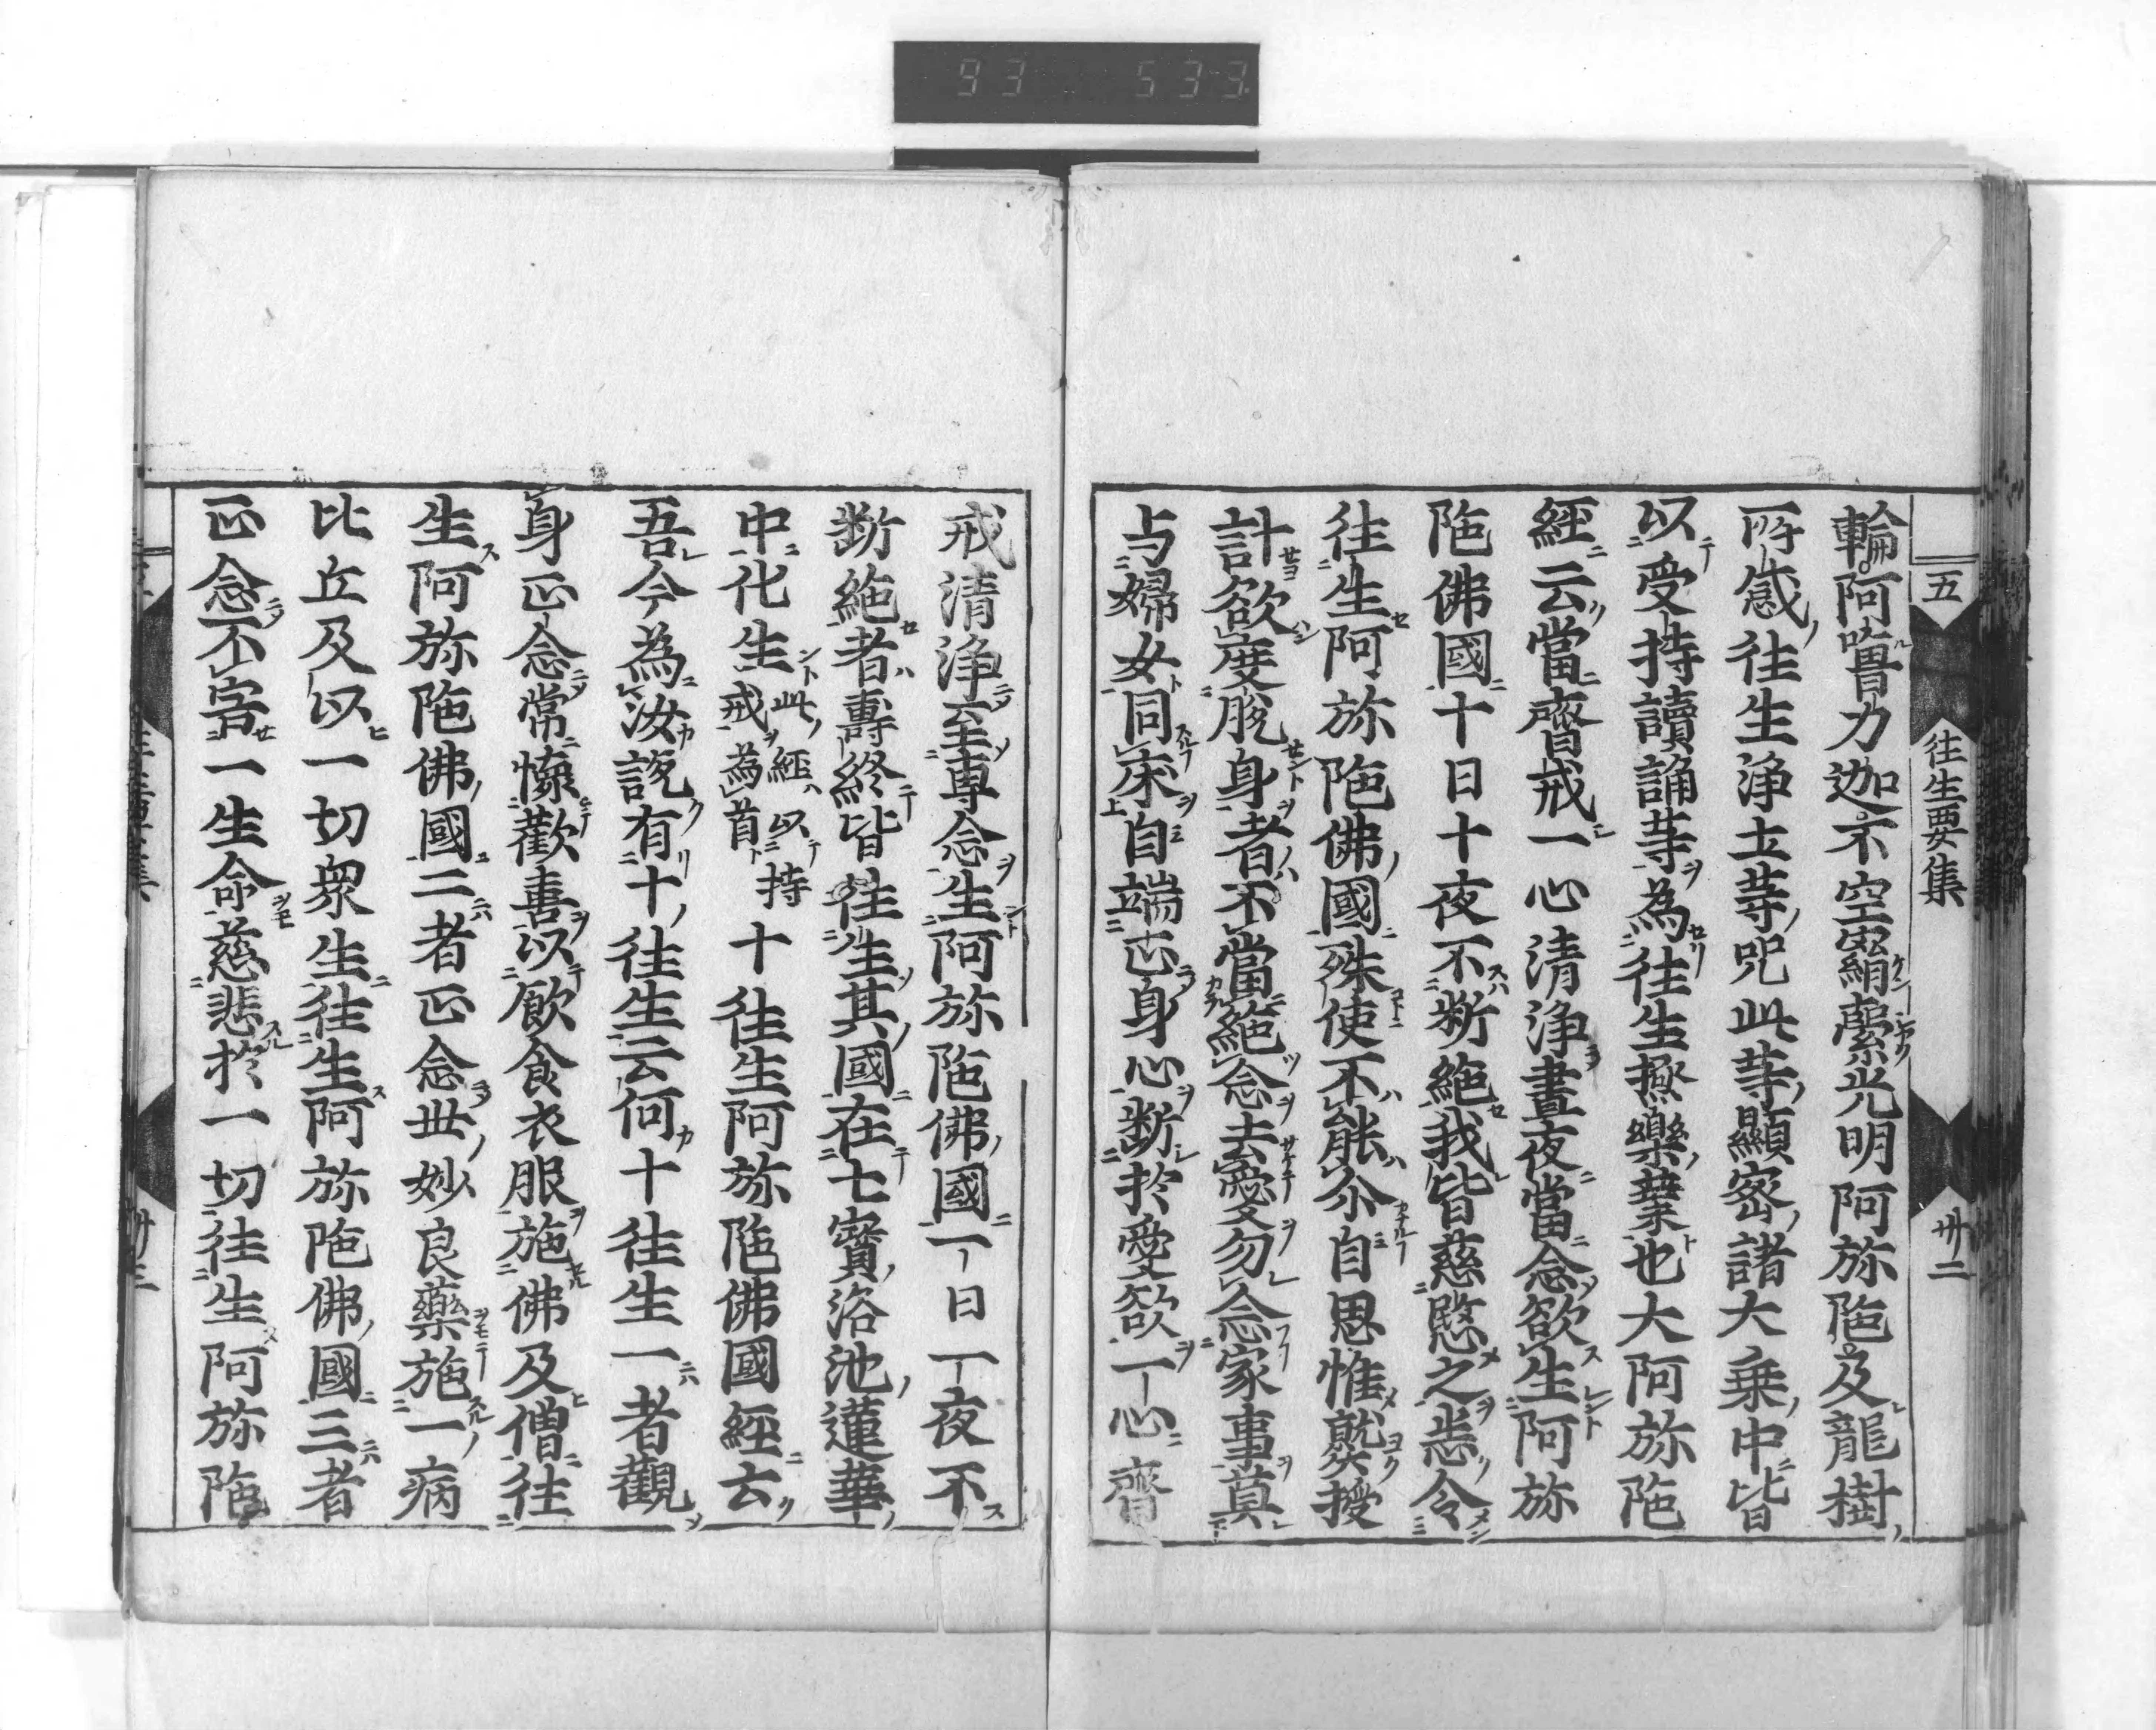 93 533
五
往生要集
卅二
輪阿嚕力迦不空羂索光明阿弥陁及龍樹
所感往生浄土等咒此等顯密諸大乗中皆
以受持讀誦等為往生極樂業也大阿弥陁
經云當齋戒一心清浄晝夜當念欲生阿弥
陁佛國十日十夜不断絶我皆慈愍之悉令
往生阿弥陁佛國殊使不能尒自思惟熟挍
計欲度脱身者不當絶念去愛勿念家事莫
与婦女同床自端正身心断於愛欲一心齋
戒清浄至専念生阿弥陁佛國一日一夜不
断絶者壽終皆往生其國在七寳浴池蓮華
中化生此經以持戒為首十往生阿弥陁佛國經云
吾今為汝説有十往生云何十往生一者觀
身正念常懐歡喜以飲食衣服施佛及僧往
生阿弥陁佛國二者正念世妙良藥施一病
比丘及以一切衆生往生阿弥陁佛國三者
正念不害一生命慈悲於一切往生阿弥陁